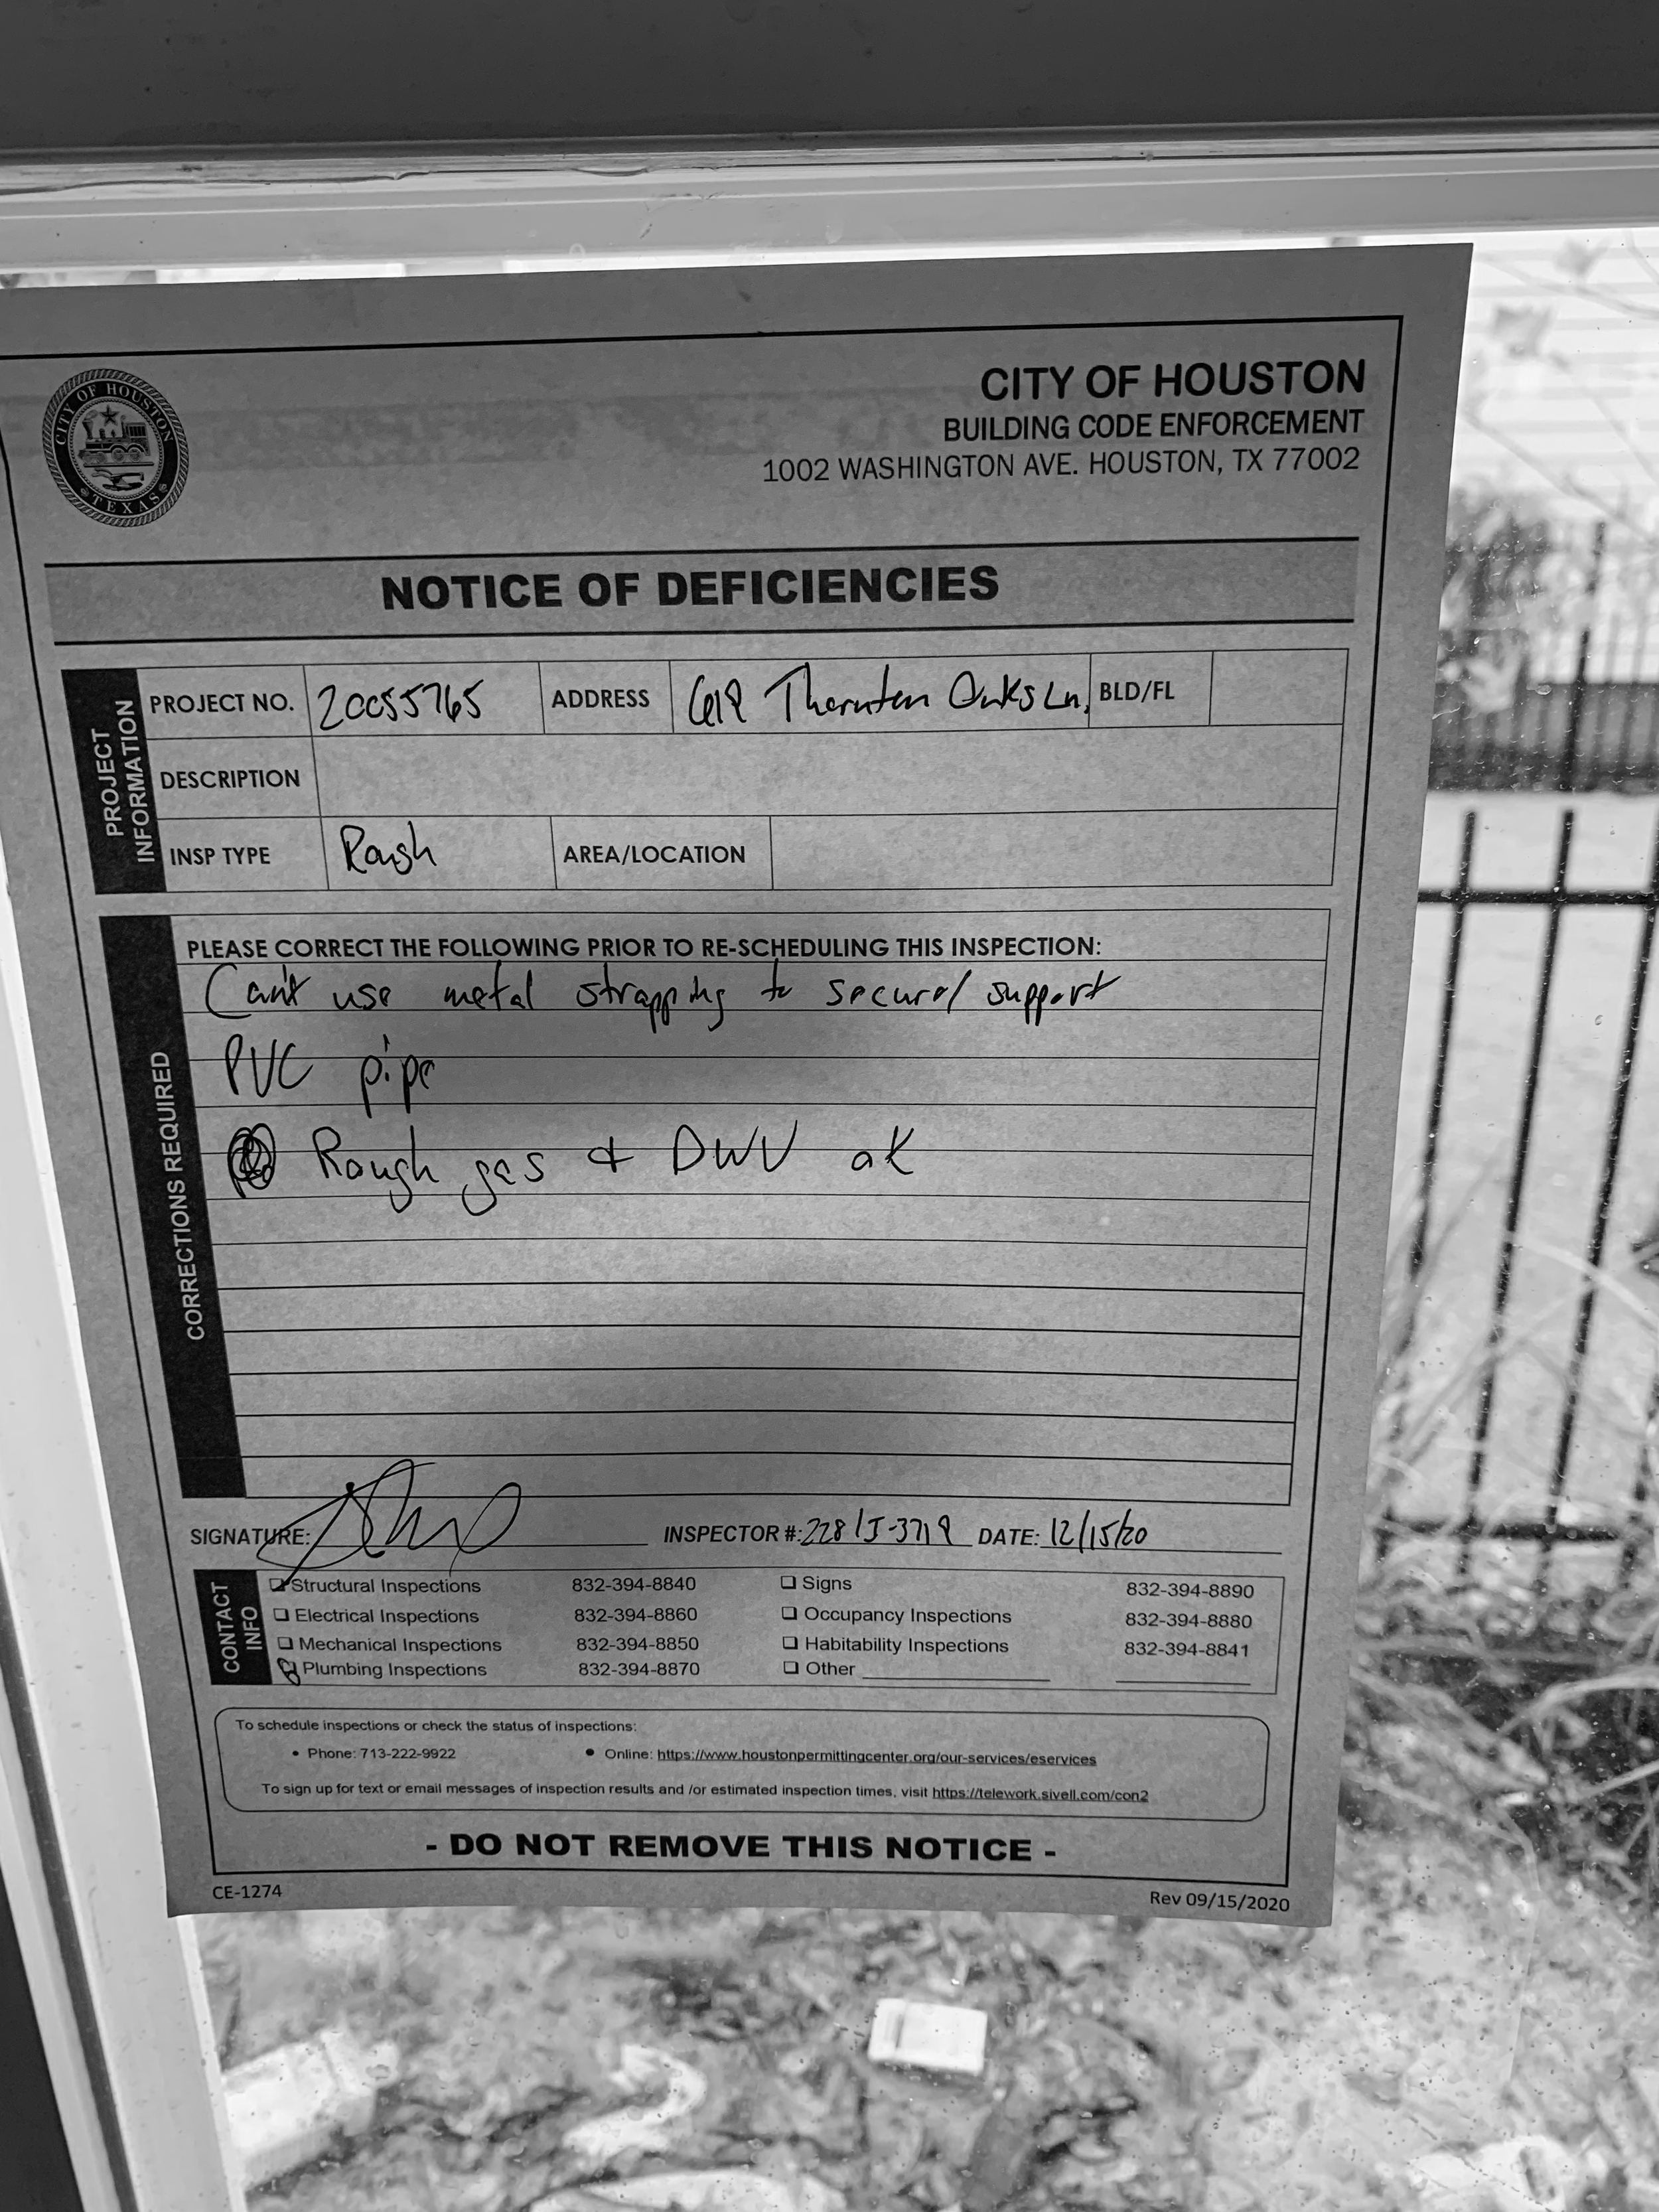 CITY OF HOUSTON
TEXAS
CITY OF HOUSTON
BUILDING CODE ENFORCEMENT
1002 WASHINGTON AVE. HOUSTON, TX 77002
NOTICE OF DEFICIENCIES
PROJECT INFORMATION
PROJECT NO. 20055765 ADDRESS 618 Thornton Oaks Ln, BLD/FL
DESCRIPTION
INSP TYPE Rough AREA/LOCATION
CORRECTIONS REQUIRED
PLEASE CORRECT THE FOLLOWING PRIOR TO RE-SCHEDULING THIS INSPECTION:
Can't use metal strapping to secure/support
PVC pipe
Rough gas & DWV ok
SIGNATURE: INSPECTOR #: 228/J-3719 DATE: 12/15/20
CONTACT INFO
Structural Inspections 832-394-8840 Signs 832-394-8890
Electrical Inspections 832-394-8860 Occupancy Inspections 832-394-8880
Mechanical Inspections 832-394-8850 Habitability Inspections 832-394-8841
Plumbing Inspections 832-394-8870 Other
To schedule inspections or check the status of inspections:
• Phone: 713-222-9922 • Online: https://www.houstonpermittingcenter.org/our-services/eservices
To sign up for text or email messages of inspection results and /or estimated inspection times, visit https://telework.sivell.com/con2
- DO NOT REMOVE THIS NOTICE -
CE-1274 Rev 09/15/2020